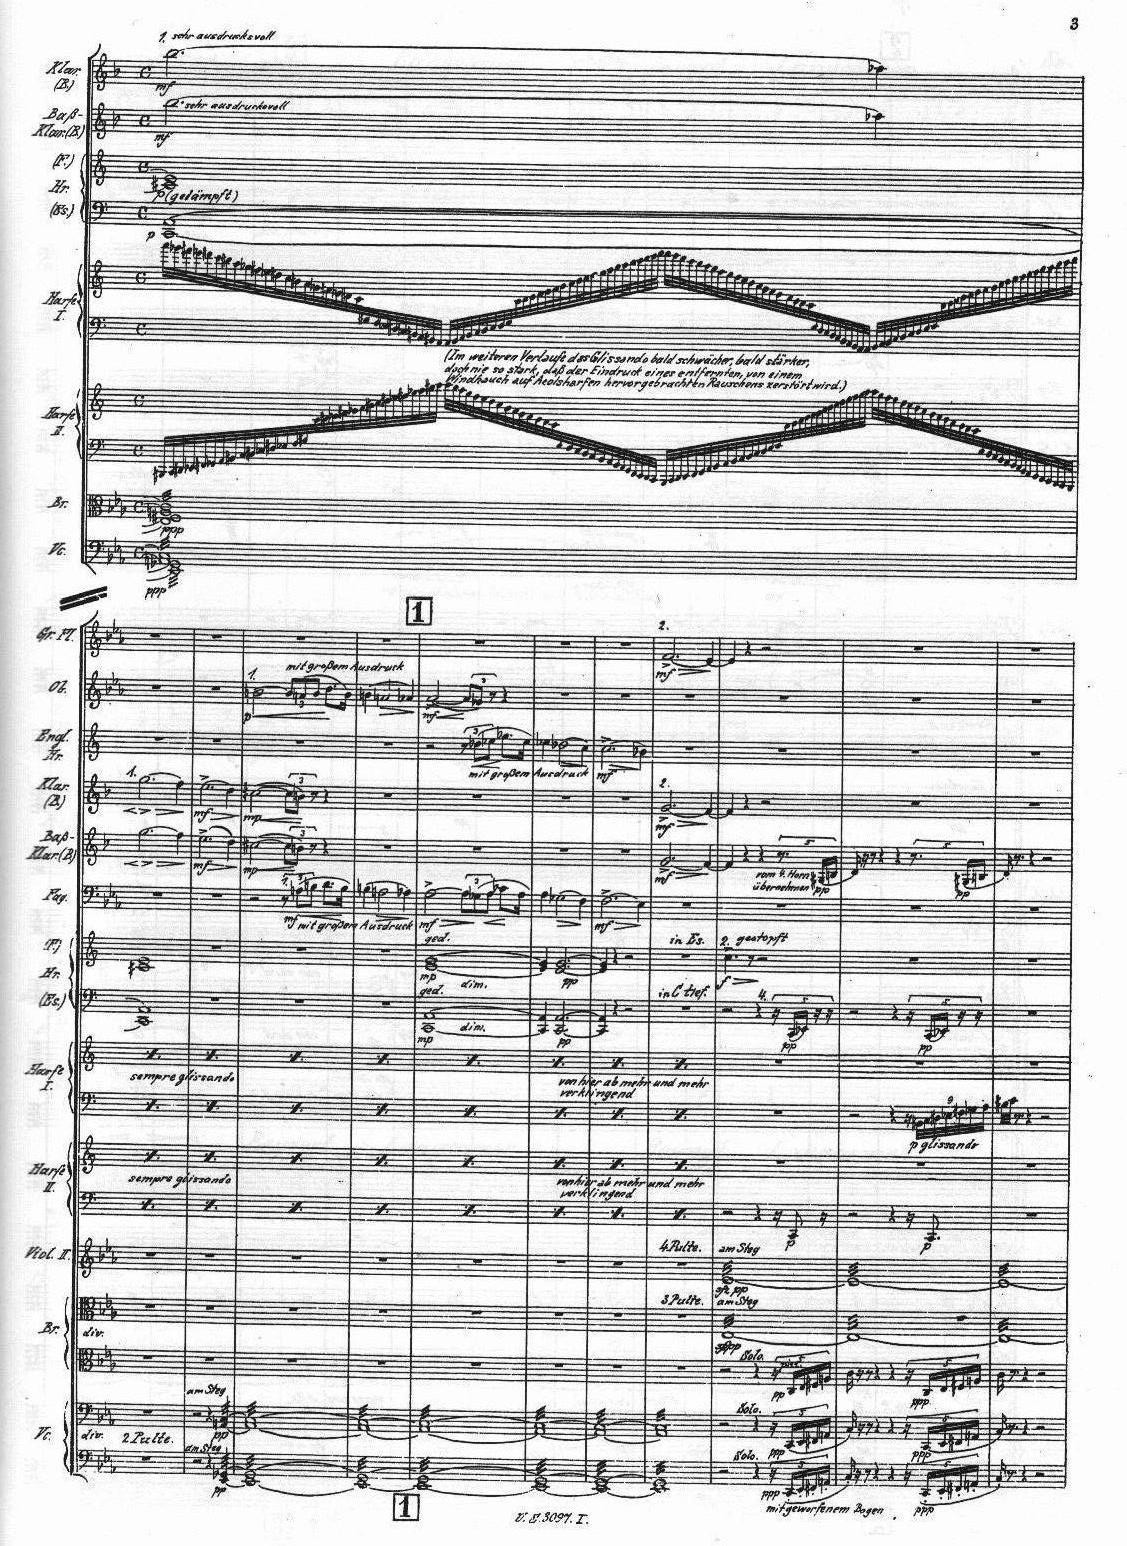 3
1. sehr ausdrucksvoll
Klar.
(B)
mf
sehr ausdrucksvoll
Baß-
Klar.(B)
mf
(F.)
Hr.
p (gedämpft)
(Es.)
p
Harfe
I.
(Im weiteren Verlaufe des Glissando bald schwächer, bald stärker,
doch nie so stark, daß der Eindruck eines entfernten, von einem
Windhauch auf Aeolsharfen hervorgebrachten Rauschens zerstört wird.)
Harfe
II.
Br.
ppp
Vc.
ppp
1
Gr. Fl.
2.
mf
Ob.
1. mit großem Ausdruck
p
mf
Engl.
Hr.
3
mit großem Ausdruck mf
Klar.
(B)
1.
mf
mp
3
2.
mf
Baß-
Klar.(B)
mf
mp
3
mf
vom 4. Horn
übernehmen
pp
5
5
pp
Fag.
1.
3
mf mit großem Ausdruck
mf
3
mf
(F.)
Hr.
ged.
mp
dim.
pp
in Es.
2. gestopft
f
(Es.)
ged.
mp
dim.
pp
in C tief.
4.
5
pp
5
pp
Harfe
I.
sempre glissando
von hier ab mehr und mehr
verklingend
9
p glissando
Harfe
II.
sempre glissando
von hier ab mehr und mehr
verklingend
p
p
Viol. II.
4 Pulte.
am Steg
sfz pp
Br.
div.
3 Pulte.
am Steg
Solo.
pp
5
5
ppp
Vc.
div.
am Steg
pp
Solo.
5
ppp
5
ppp
2 Pulte.
am Steg
pp
Solo.
5
ppp
5
ppp
mit geworfenem Bogen
1
U. E. 3097. I.